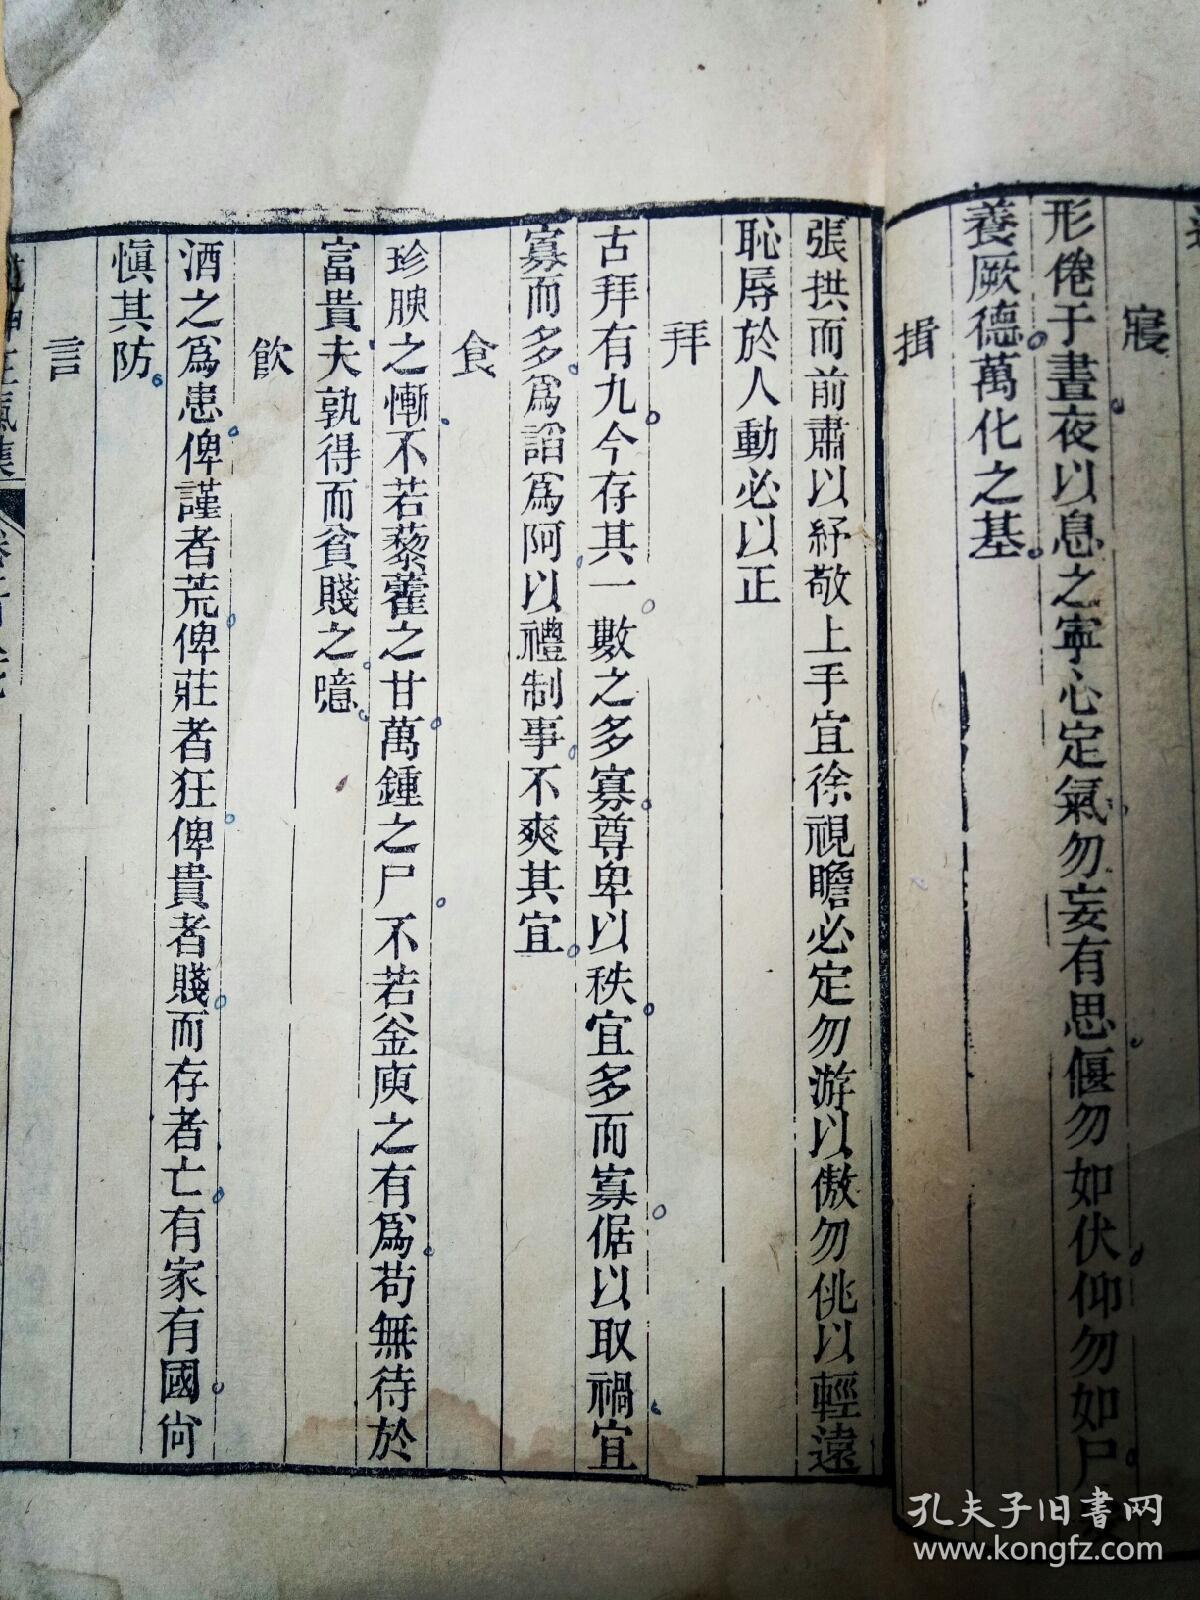 寢
形倦于晝夜以息之寧心定氣勿妄有思偃勿如伏仰勿如尸
養厥德萬化之基
揖
張拱而前肅以紓敬上手宜徐視瞻必定勿游以傲勿佻以輕遠
恥辱於人動必以正
拜
古拜有九今存其一數之多寡尊卑以秩宜多而寡倨以取禍宜
寡而多爲諂爲阿以禮制事不爽其宜
食
珍腴之慚不若藜藿之甘萬鍾之尸不若釜庾之有爲苟無待於
富貴夫孰得而貧賤之噫
飲
酒之爲患俾謹者荒俾莊者狂俾貴者賤而存者亡有家有國尙
愼其防
言
孔夫子旧書网
www.kongfz.com